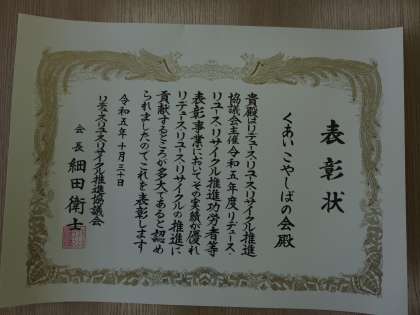 表彰状
くあいこやしばの会殿
貴殿はリデュース・リユース・リサイクル推進
協議会主催令和五年度リデュース・
リユース・リサイクル推進功労者等
表彰事業において、その実績が優れ
リデュース・リユース・リサイクルの推進に
貢献するところが多大であると認め
られましたのでこれを表彰します
令和五年十月三十日
リデュース・リユース・リサイクル推進協議会
会長 細田衛士